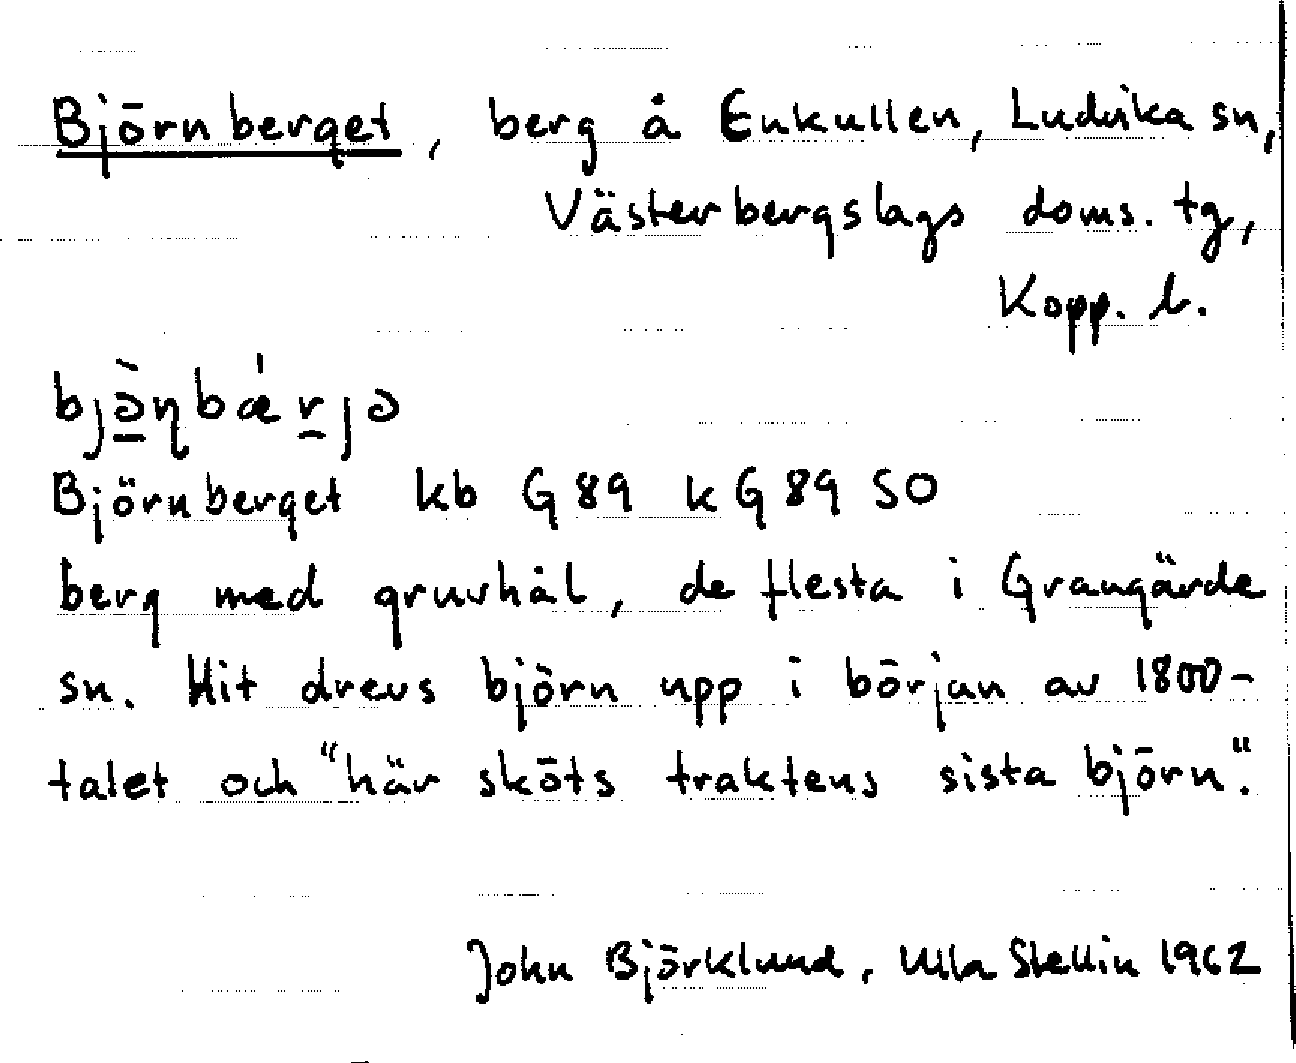 Björnberget, berg å Enkullen, Ludvika sn,
Västerbergslags doms. tg,
Kopp. l.
bjə̱̀ɳbǽṟjə
Björnberget kb G 89 k G 89 SO
berg med gruvhål, de flesta i Grangärde
sn. Hit drevs björn upp i början av 1800-
talet och "här sköts traktens sista björn".
John Björklund, Ulla Stellin 1962